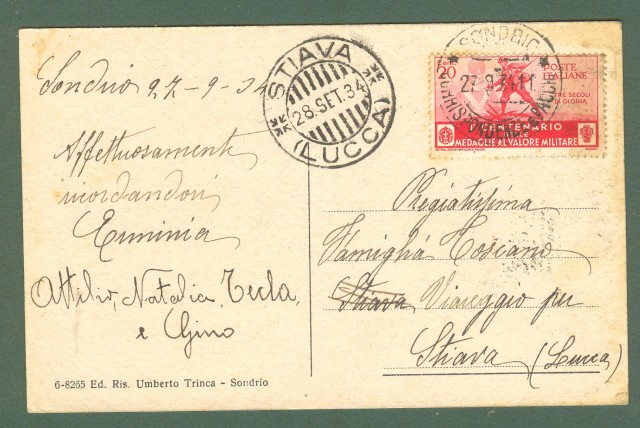 Sondrio 27-9-34
Affettuosamente
ricordandovi
Erminia
Attilio, Natalia, Tecla,
e Gino
6-8265 Ed. Ris. Umberto Trinca - Sondrio
STIAVA
28.SET.34
(LUCCA)
SONDRIO
27.9.34.11
CORRISPONDENZE PACCHI
20
POSTE
ITALIANE
TRE SECOLI
DI GLORIA
CENTENARIO
DELLE
MEDAGLIE AL VALORE MILITARE
Pregiatissima
Famiglia Toscano
Stiava Viareggio per
Stiava (Lucca)